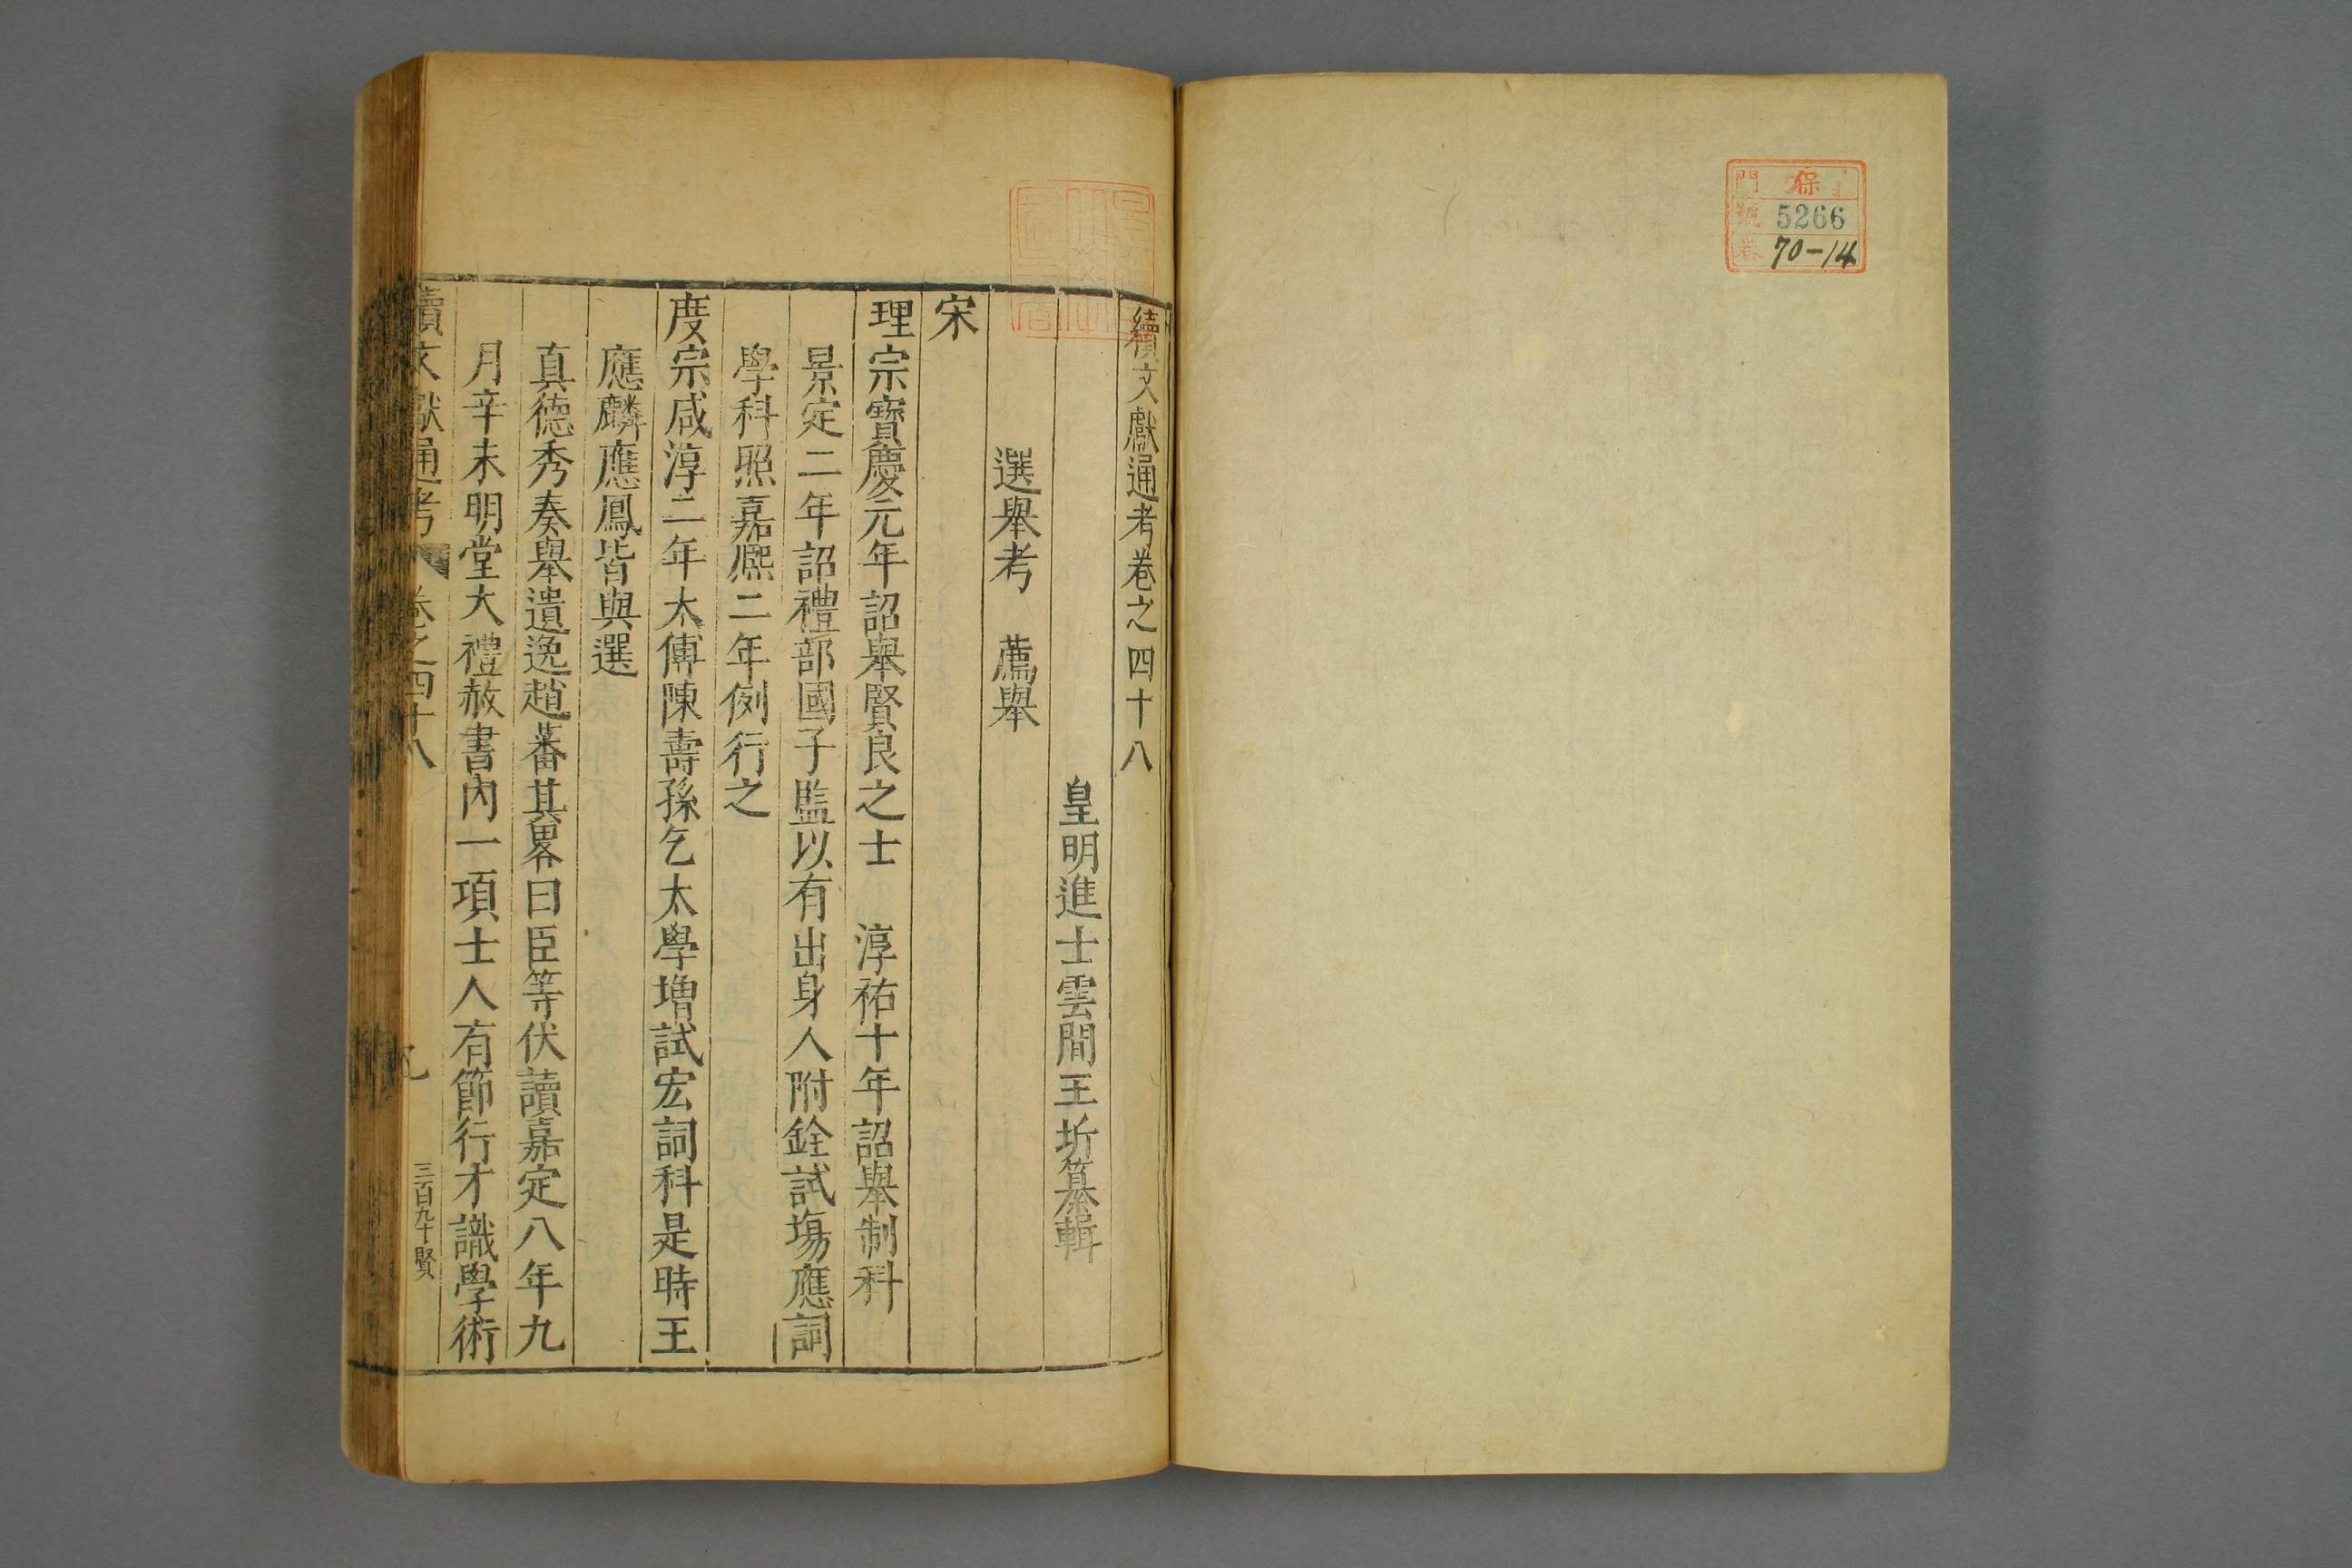 門 保
號 5266
卷 70-14
續文獻通考卷之四十八
皇明進士雲間王圻纂輯
選舉考 薦舉
宋
理宗寶慶元年詔舉賢良之士 淳祐十年詔舉制科
景定二年詔禮部國子監以有出身人附銓試塲應詞
學科照嘉熈二年例行之
度宗咸淳二年太傅陳壽孫乞太學增試宏詞科是時王
應麟應鳳皆與選
真德秀奏舉遺逸趙蕃其畧曰臣等伏讀嘉定八年九
月辛未明堂大禮赦書內一項士人有節行才識學術
續文獻通考 卷之四十八
三百九十賢